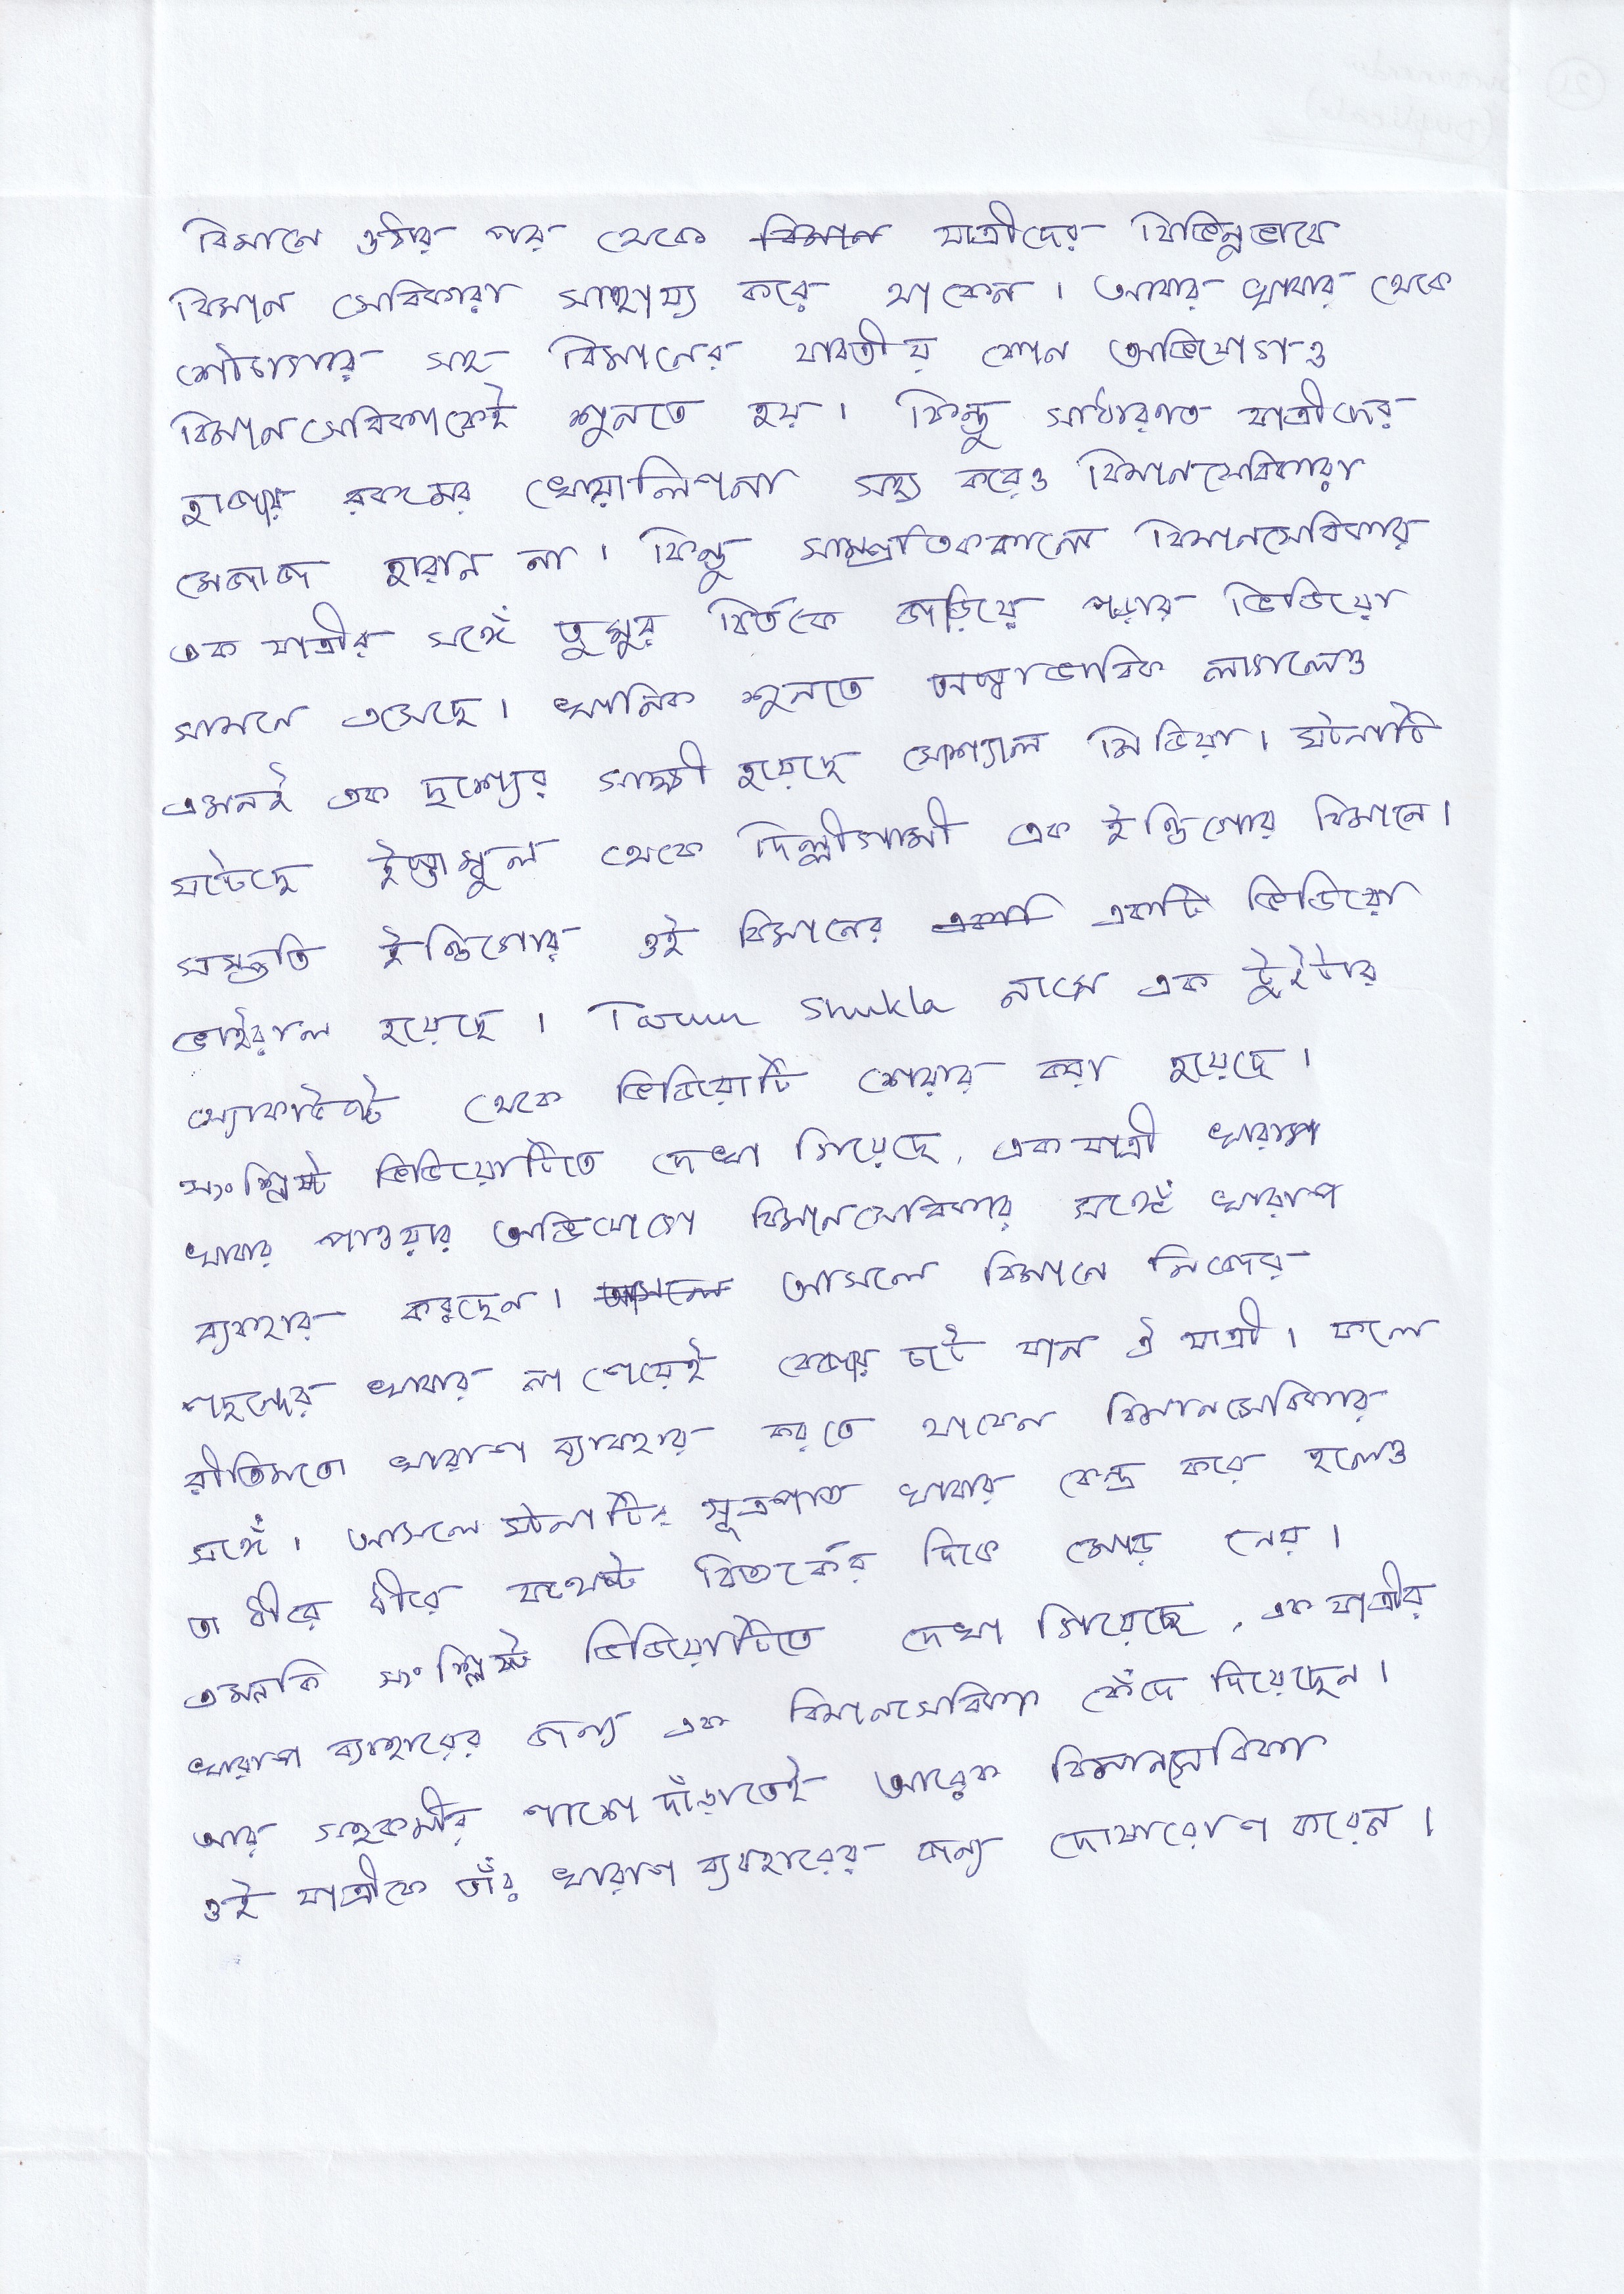 বিমানে ওঠার পর থেকে বিমান যাত্রীদের বিভিন্নভাবে
বিমান সেবিকারা সাহায্য করে থাকেন। আবার খাবার থেকে
শৌচাগার সহ বিমানের যাবতীয় কোন অভিযোগও
বিমানসেবিকাকেই শুনতে হয়। কিন্তু সাধারণত যাত্রীদের
হাজার রকমের খেয়ালিপনা সহ্য করেও বিমানসেবিকারা
মেজাজ হারান না। কিন্তু সাম্প্রতিককালে বিমানসেবিকার
এক যাত্রীর সঙ্গেঁ তুমুল বির্তকে জড়িয়ে পড়ার ভিডিয়ো
সামনে এসেছে। খানিক শুনতে অস্বাভাবিক লাগলেও
এমনই এক দৃশ্যের সাক্ষী হয়েছে সোশ্যাল মিডিয়া। ঘটনাটি
ঘটেছে ইস্তাম্বুল থেকে দিল্লীগামী এক ইন্ডিগোর বিমানে।
সম্প্রতি ইন্ডিগোর ওই বিমানের একটি একটি ভিডিয়ো
ভাইরাল হয়েছে। Tarun Shukla নামে এক টুইটার
অ্যাকাউন্ট থেকে ভিডিয়োটি শেয়ার করা হয়েছে।
সংশ্লিষ্ট ভিডিয়োটিতে দেখা গিয়েছে, এক যাত্রী খারাপ
খাবার পাওয়ার অভিযোগে বিমানসেবিকার সঙ্গেঁ খারাপ
ব্যবহার করছেন। আসলে আসলে বিমানে নিজের
পছন্দের খাবার না পেয়েই বেজায় চটে যান ঐ যাত্রী। ফলে
রীতিমতো খারাপ ব্যাবহার করতে থাকেন বিমানসেবিকার
সঙ্গেঁ। আসলে ঘটনাটির সূত্রপাত খাবার কেন্দ্র করে হলেও
তা ধীরে ধীরে যথেষ্ট বিতর্কের দিকে মোড় নেয়।
এমনকি সংশ্লিষ্ট ভিডিয়োটিতে দেখা গিয়েছে, এক যাত্রীর
খারাপ ব্যবহারের জন্য এক বিমানসেবিকা কেঁদে দিয়েছেন।
আর সহকর্মীর পাশে দাঁড়াতেই আরেক বিমানসেবিকা
ওই যাত্রীকে তাঁর খারাপ ব্যবহারের জন্য দোষারোপ করেন।